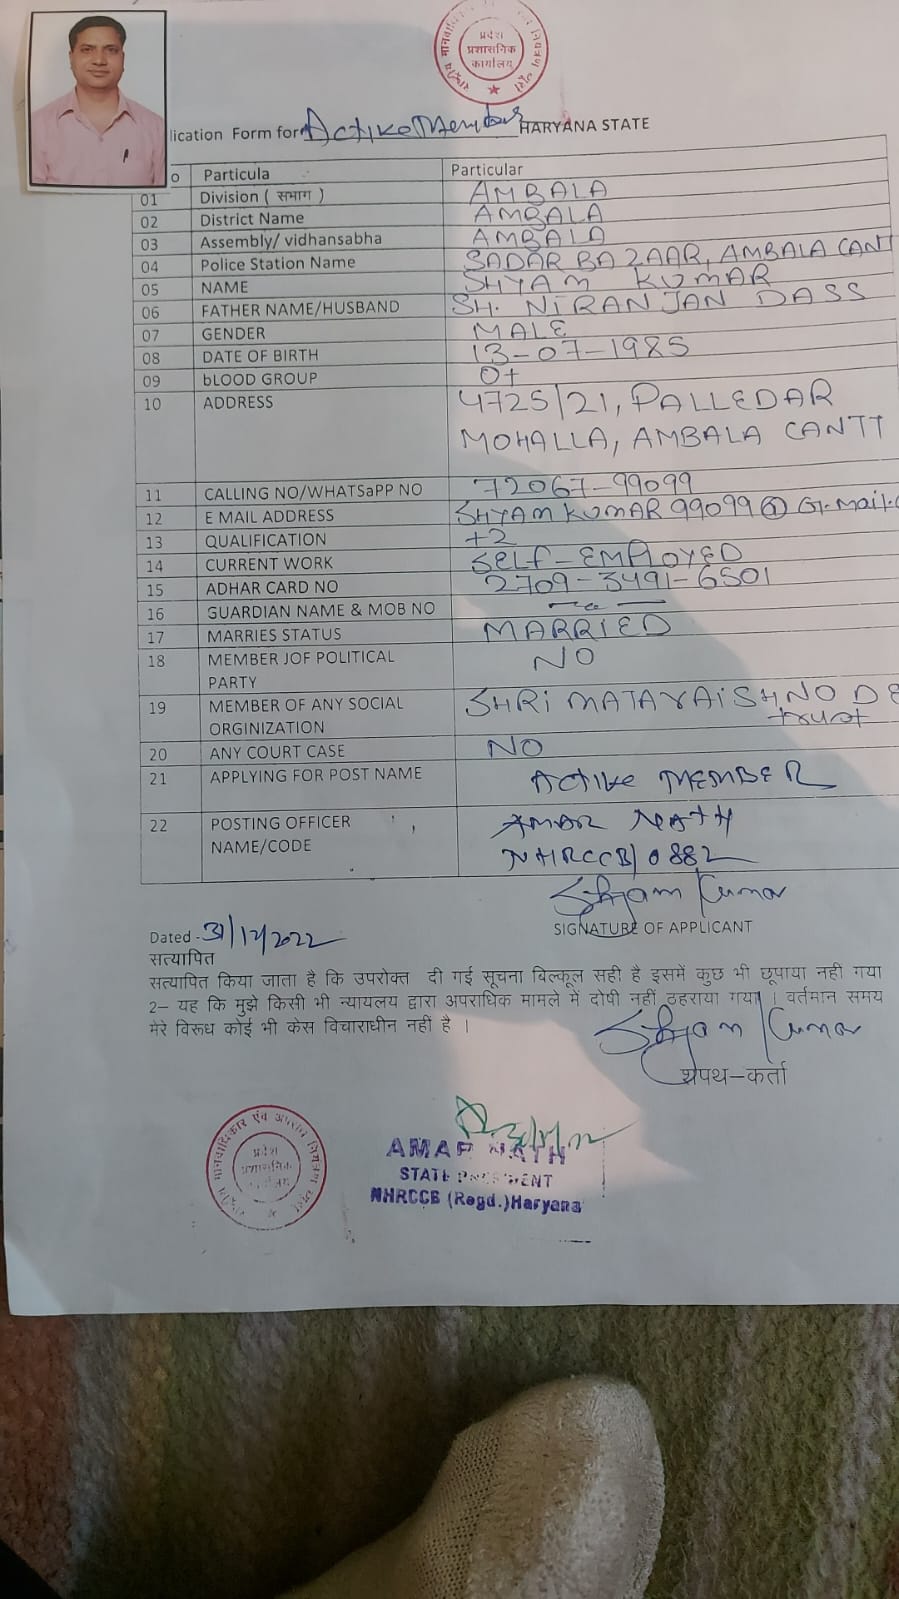 प्रदेश
प्रशासनिक
कार्यालय
lication Form for Active Member HARYANA STATE
o Particula Particular
01 Division ( सभाग ) AMBALA
02 District Name AMBALA
03 Assembly/ vidhansabha AMBALA
04 Police Station Name SADAR BAZAAR, AMBALA CANT
05 NAME SHYAM KUMAR
06 FATHER NAME/HUSBAND SH. NIRANJAN DASS
07 GENDER MALE
08 DATE OF BIRTH 13-07-1985
09 bLOOD GROUP O+
10 ADDRESS 4725/21, PALLEDAR
MOHALLA, AMBALA CANTT
11 CALLING NO/WHATSaPP NO 72067-99099
12 E MAIL ADDRESS SHYAMKUMAR99099@G.mail.
13 QUALIFICATION +2
14 CURRENT WORK SELF-EMPLOYED
15 ADHAR CARD NO 2709-3491-6501
16 GUARDIAN NAME & MOB NO
17 MARRIES STATUS MARRIED
18 MEMBER JOF POLITICAL NO
PARTY
19 MEMBER OF ANY SOCIAL SHRI MATAVAISHNO DE
ORGINIZATION trust
20 ANY COURT CASE NO
21 APPLYING FOR POST NAME Active MEMBER
22 POSTING OFFICER AMAR NATH
NAME/CODE NHRCCB/0882
Shyam Kumar
SIGNATURE OF APPLICANT
Dated - 31/12/2022
सत्यापित
सत्यापित किया जाता है कि उपरोक्त दी गई सूचना बिल्कूल सही है इसमें कुछ भी छूपाया नही गया
2– यह कि मुझे किसी भी न्यायलय द्वारा अपराधिक मामले में दोषी नहीं ठहराया गया । वर्तमान समय
मेरे विरूध कोई भी केस विचाराधीन नहीं है ।
Shyam Kumar
शपथ–कर्ता
मानवाधिकार एंव अपराध नियंत्रण
प्रदेश
प्रशासनिक
AMAR NATH
STATE PRESIDENT
NHRCCB (Regd.)Haryana